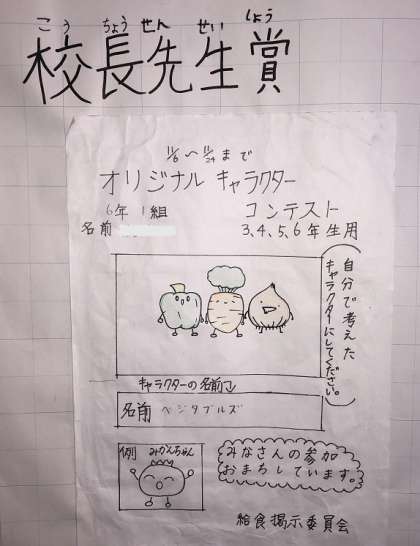 こう ちょう せん せい しょう
校長先生賞
11/6〜11/24まで
オリジナル キャラクター
コンテスト
6年 1組
3、4、5、6年生用
名前
自分で考えた
キャラクターにしてください。
キャラクターの名前↓
名前 ベジタブルズ
例 みかんちゃん
みなさんの参加
おまちしています。
給食掲示委員会